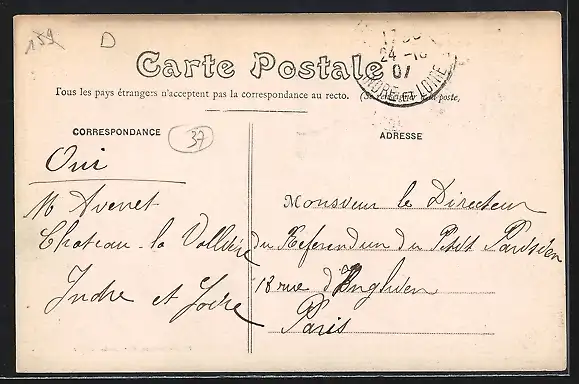 159
D
17 30
24 -10
07
INDRE ET LOIRE
Carte Postale
Tous les pays étrangers n'acceptent pas la correspondance au recto. (Se renseigner à la poste,
CORRESPONDANCE
37
ADRESSE
Oui
M Avenet
Chateau-la Vallière
Indre et Loire
Monsieur le Directeur
du Referendum du Petit Parisien
18 rue d'Enghien
Paris